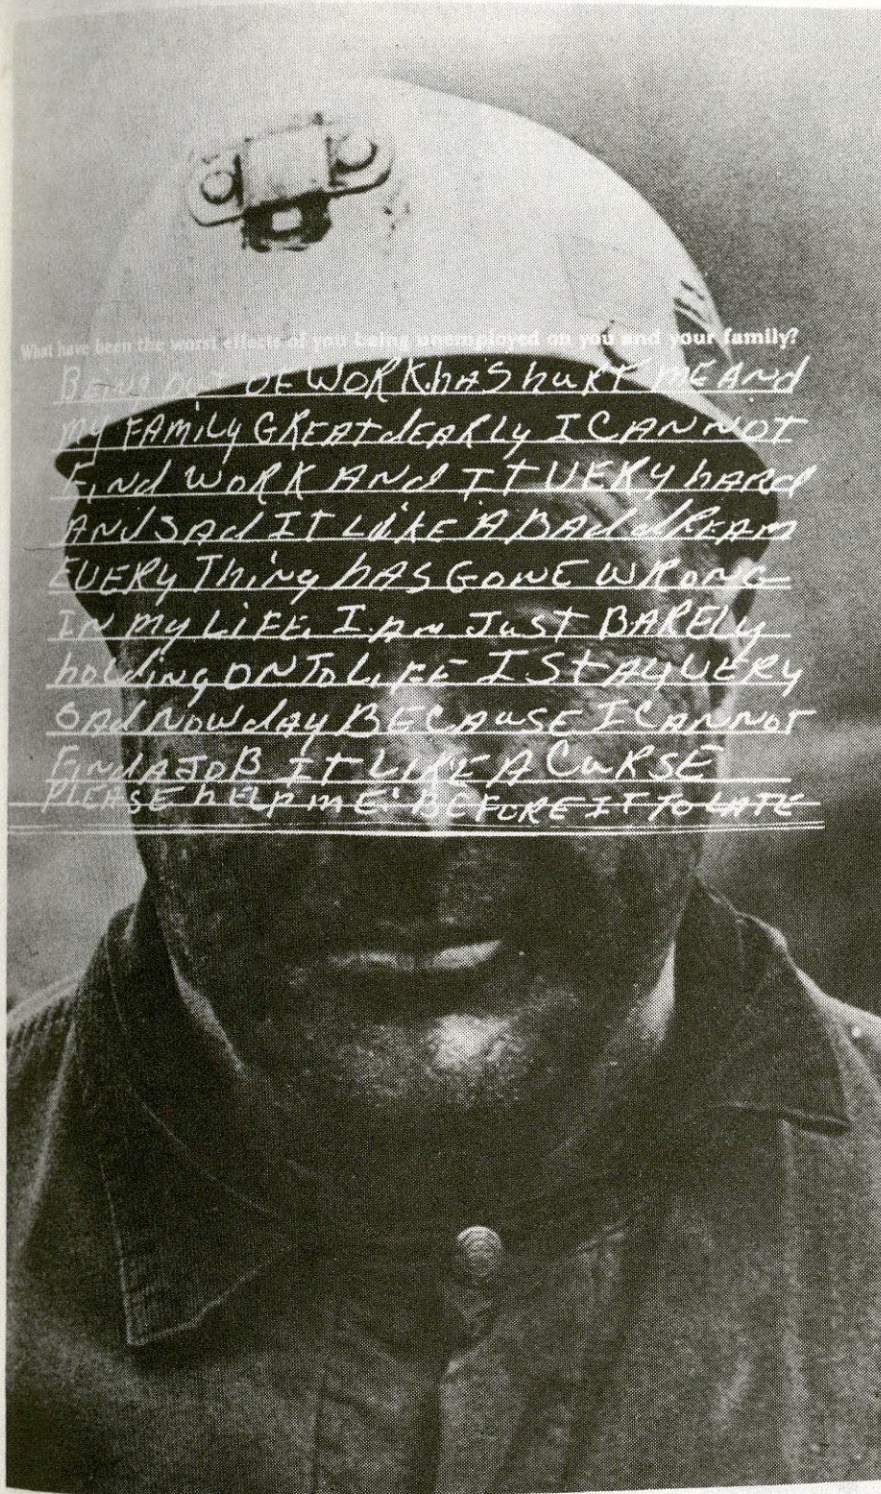 What have been the worst effects of you being unemployed on you and your family?
BEING OUT OF WORK hAS huRT ME ANd
MY FAMILY GREAT dEARLY I CAN NOT
FiNd WORK ANd IT VERY hARd
ANd SAd IT LiKE A BAd dREAM
EVERY Thing hAS GONE WRONG
IN MY LIFE. I Am JuST BARELY
holding ON To LiFE I StAY VERY
SAd NOW dAY BECAuSE I CANNOT
FiNd A JOB IT LIKE A CuRSE
PLEASE hELP ME! BEFORE IT TO LATE